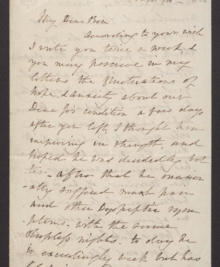 My Dear Son
According to your wish
I write you twice a week, &
you may perceive in my
letters the fluctuations of
hope & anxiety about our
Dear for condition a few days
after you left, I thought him
improving in strength, and
hoped he was decidedly bet
ter. after that he
suffered much pain
and other Dyspeptic symp
toms. with the same
sleepless nights. to day he
is exceedingly weak but has